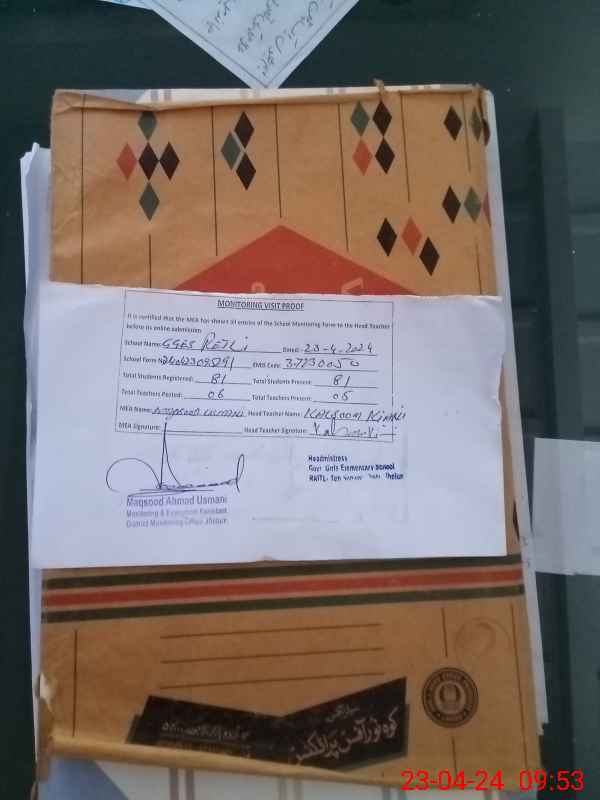 MONITORING VISIT PROOF
It is certified that the MEA has shown all entries of the School Monitoring Form to the Head Teacher
before its online submission
School Name: GGES RETLi Dated: 23-4-2024
School Form No. EMIS Code: 37230050
Total Students Registered: 81 Total Students Present: 81
Total Teachers Posted: 06 Total Teachers Present: 05
MEA Name: MAQSOOD USMANI Head Teacher Name: KALSOOM KIANI
MEA Signature: Head Teacher Signature:
Headmistress
Govt Girls Elementary School
Maqsood Ahmad Usmani
Monitoring & Evaluation Assistant
District Monitoring Office Jhelum
کوہ نور آفس پراڈکٹس
23-04-24 09:53